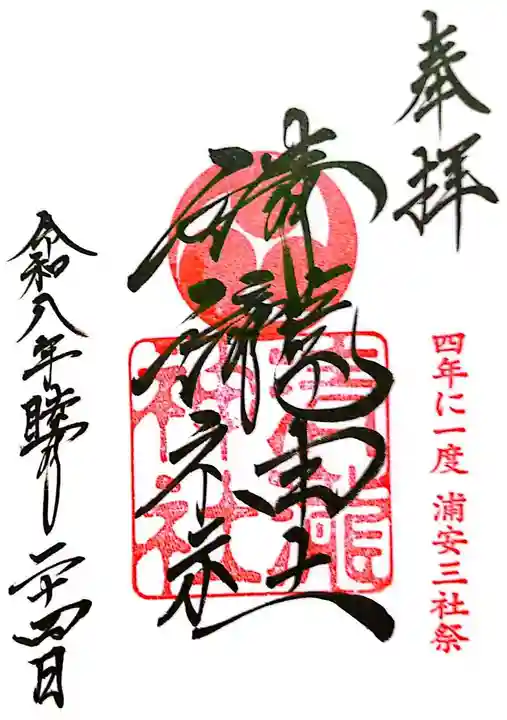 奉拝
四年に一度 浦安三社祭
清瀧神社
清瀧
神社
令和八年睦月二十四日